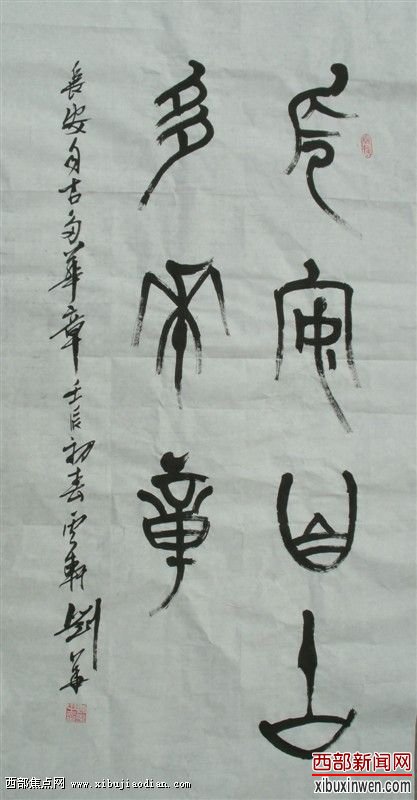 長安自古
多華章
長安自古多華章 壬辰初春雲軒劉華
西部焦点网 www.xibujiaodian.com
西部新闻网
xibuxinwen.com